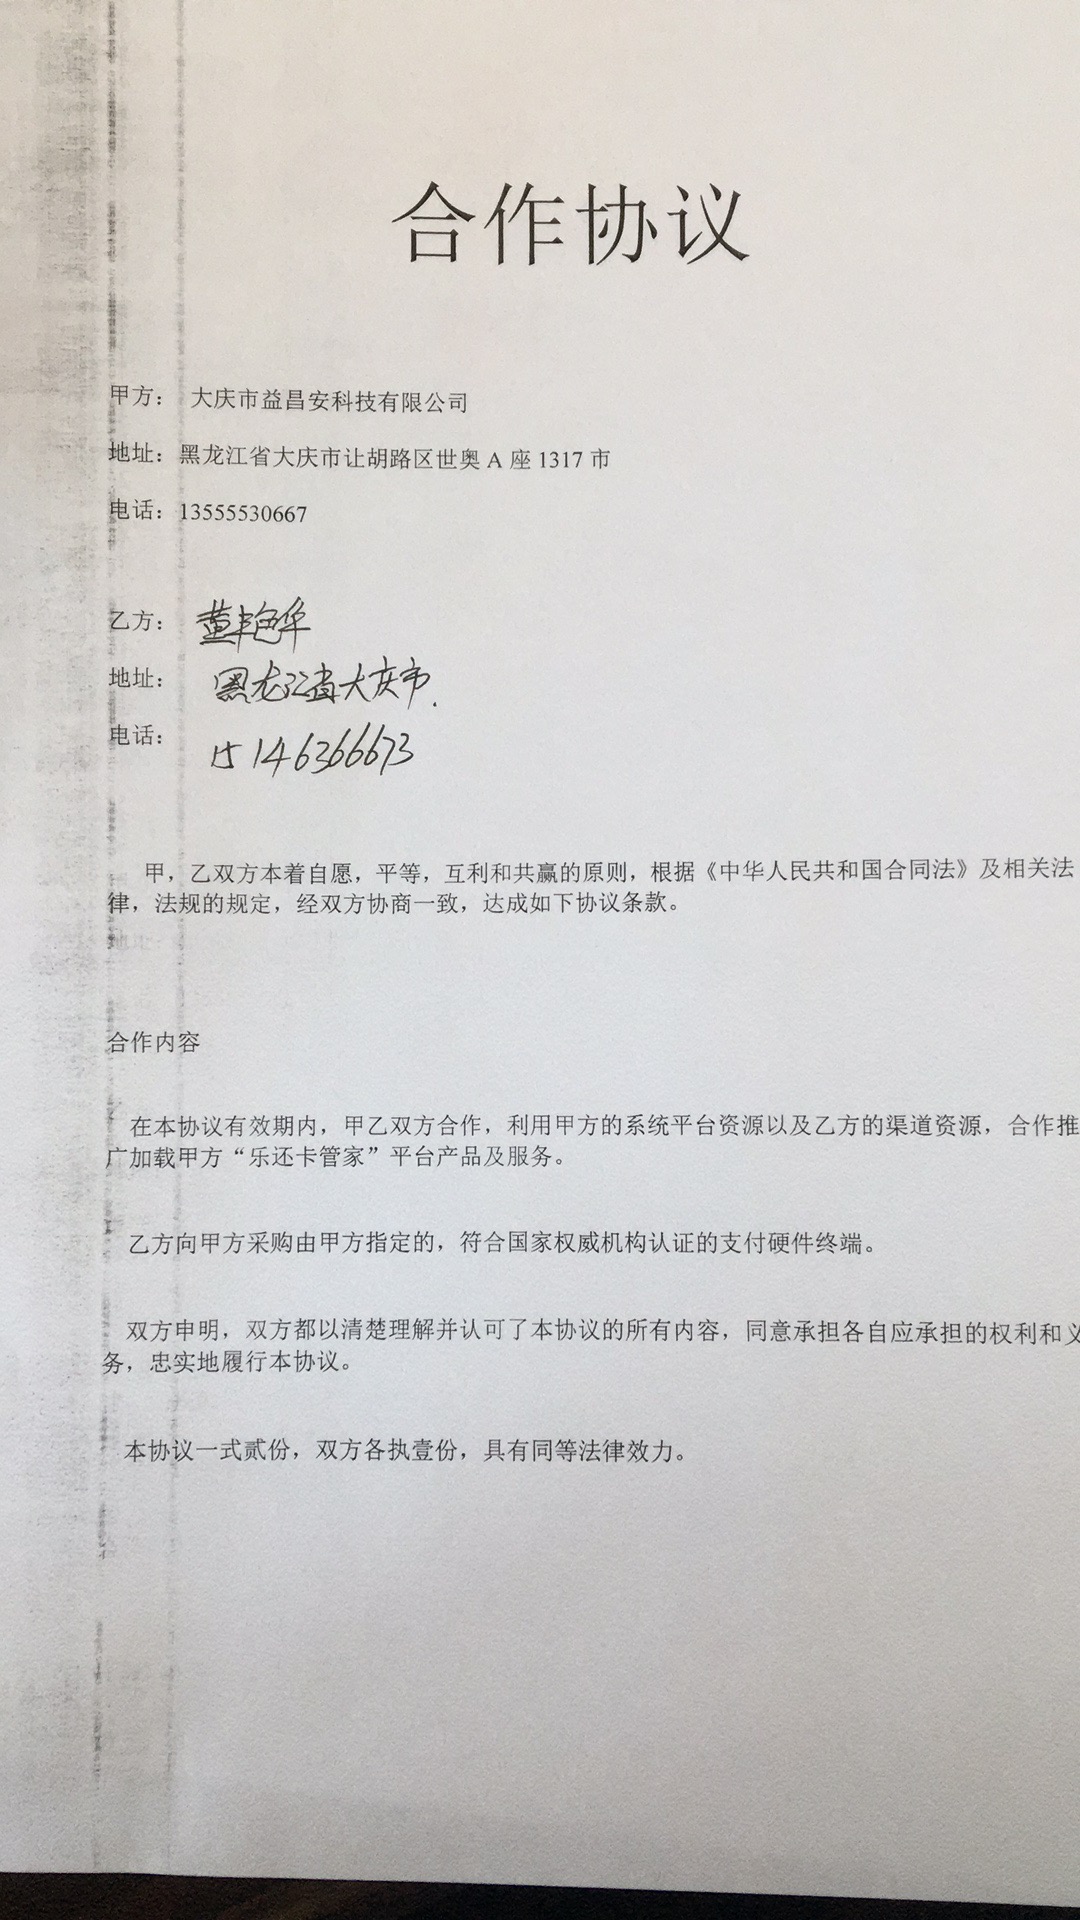 合作协议
甲方： 大庆市益昌安科技有限公司
地址：黑龙江省大庆市让胡路区世奥 A 座 1317 市
电话：13555530667
乙方： 董艳华
地址： 黑龙江省大庆市.
电话： 15146366673
甲，乙双方本着自愿，平等，互利和共赢的原则，根据《中华人民共和国合同法》及相关法
律，法规的规定，经双方协商一致，达成如下协议条款。
地址：
合作内容
在本协议有效期内，甲乙双方合作，利用甲方的系统平台资源以及乙方的渠道资源，合作推
广加载甲方“乐还卡管家”平台产品及服务。
乙方向甲方采购由甲方指定的，符合国家权威机构认证的支付硬件终端。
双方申明，双方都以清楚理解并认可了本协议的所有内容，同意承担各自应承担的权利和义
务，忠实地履行本协议。
本协议一式贰份，双方各执壹份，具有同等法律效力。